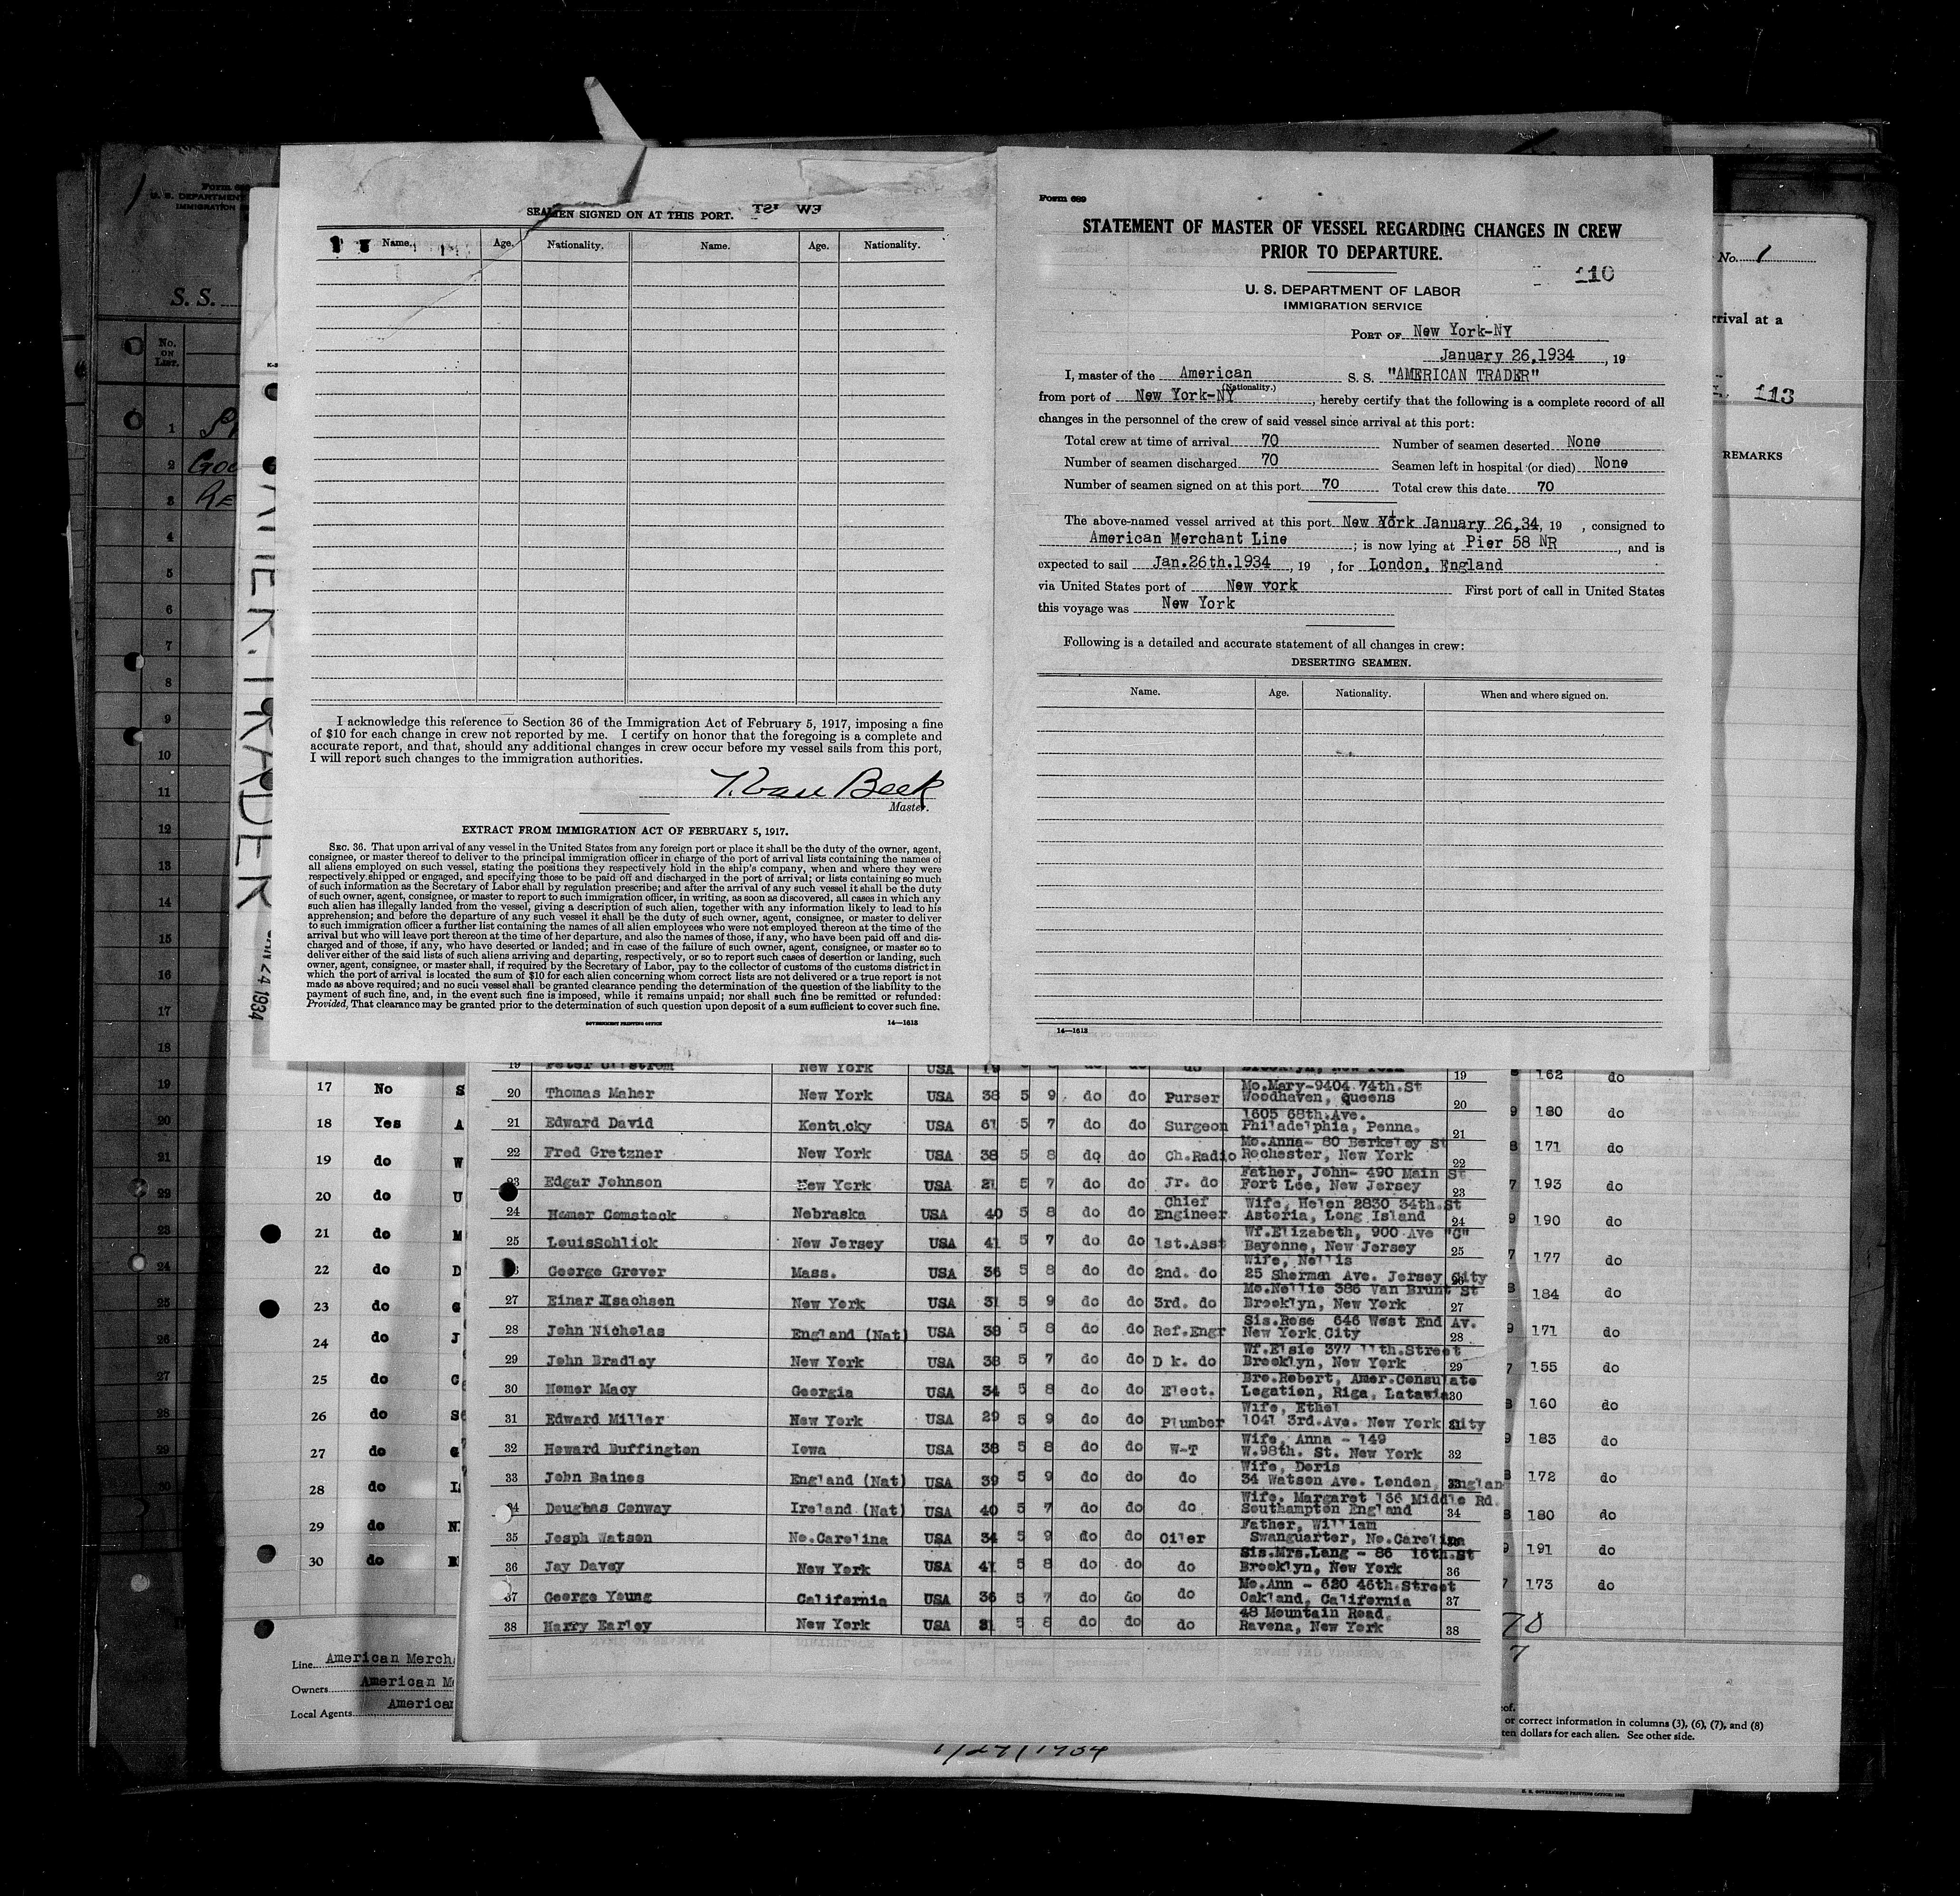 SEAMEN SIGNED ON AT THIS PORT.
Name. Age. Nationality. Name. Age. Nationality.
I acknowledge this reference to Section 36 of the Immigration Act of February 5, 1917, imposing a fine
of $10 for each change in crew not reported by me. I certify on honor that the foregoing is a complete and
accurate report, and that, should any additional changes in crew occur before my vessel sails from this port,
I will report such changes to the immigration authorities.
T. Van Beek
Master.
EXTRACT FROM IMMIGRATION ACT OF FEBRUARY 5, 1917.
SEC. 36. That upon arrival of any vessel in the United States from any foreign port or place it shall be the duty of the owner, agent,
consignee, or master thereof to deliver to the principal immigration officer in charge of the port of arrival lists containing the names of
all aliens employed on such vessel, stating the positions they respectively hold in the ship's company, when and where they were
respectively shipped or engaged, and specifying those to be paid off and discharged in the port of arrival; or lists containing so much
of such information as the Secretary of Labor shall by regulation prescribe; and after the arrival of any such vessel it shall be the duty
of such owner, agent, consignee, or master to report to such immigration officer, in writing, as soon as discovered, all cases in which any
such alien has illegally landed from the vessel, giving a description of such alien, together with any information likely to lead to his
apprehension; and before the departure of any such vessel it shall be the duty of such owner, agent, consignee, or master to deliver
to such immigration officer a further list containing the names of all alien employees who were not employed thereon at the time of the
arrival but who will leave port thereon at the time of her departure, and also the names of those, if any, who have been paid off and dis-
charged and of those, if any, who have deserted or landed; and in case of the failure of such owner, agent, consignee, or master so to
deliver either of the said lists of such aliens arriving and departing, respectively, or so to report such cases of desertion or landing, such
owner, agent, consignee, or master shall, if required by the Secretary of Labor, pay to the collector of customs of the customs district in
which the port of arrival is located the sum of $10 for each alien concerning whom correct lists are not delivered or a true report is not
made as above required; and no such vessel shall be granted clearance pending the determination of the question of the liability to the
payment of such fine, and, in the event such fine is imposed, while it remains unpaid; nor shall such fine be remitted or refunded:
Provided, That clearance may be granted prior to the determination of such question upon deposit of a sum sufficient to cover such fine.
GOVERNMENT PRINTING OFFICE 14—1613
Form 689
STATEMENT OF MASTER OF VESSEL REGARDING CHANGES IN CREW
PRIOR TO DEPARTURE.
110
U. S. DEPARTMENT OF LABOR
IMMIGRATION SERVICE
PORT OF New York-NY
January 26,1934, 19
I, master of the American S. S. "AMERICAN TRADER"
(Nationality.)
from port of New York-NY, hereby certify that the following is a complete record of all
changes in the personnel of the crew of said vessel since arrival at this port:
Total crew at time of arrival 70 Number of seamen deserted None
Number of seamen discharged 70 Seamen left in hospital (or died) None
Number of seamen signed on at this port 70 Total crew this date 70
The above-named vessel arrived at this port New York January 26,34, 19 , consigned to
American Merchant Line ; is now lying at Pier 58 NR, and is
expected to sail Jan.26th.1934, 19 , for London, England
via United States port of New york First port of call in United States
this voyage was New York
Following is a detailed and accurate statement of all changes in crew:
DESERTING SEAMEN.
Name. Age. Nationality. When and where signed on.
14—1613
U. S. DEPARTMENT
IMMIGRATION
S. S.
No. ON LIST.
1
2
3
4
5
6
7
8
9
10
11
12
13
14
15
16
17
18
19
20
21
22
23
24
25
26
27
28
29
30
JAN 24 1934
No. 1
rrival at a
113
REMARKS
17 No S
18 Yes A
19 do W
20 do U
21 do M
22 do D
23 do G
24 do J
25 do C
26 do S
27 do G
28 do I
29 do N
30 do
Line American Merch
Owners American M
Local Agents America
19 Peter Ullstrom New York USA 19 do Brooklyn, New York 19
20 Thomas Maher New York USA 38 5 9 do do Purser Mo.Mary-9404 74th.St
Woodhaven, Queens 20
21 Edward David Kentucky USA 61 5 7 do do Surgeon 1605 68th.Ave.
Philadelphia, Penna. 21
22 Fred Gretzner New York USA 38 5 8 do do Ch.Radio Mo.Anna- 80 Berkeley St
Rochester, New York 22
23 Edgar Johnson New York USA 21 5 7 do do Jr. do Father, John- 490 Main St
Fort Lee, New Jersey 23
24 Homer Comstock Nebraska USA 40 5 8 do do Chief Engineer Wife, Helen 2830 34th.St
Astoria, Long Island 24
25 LouisSchlick New Jersey USA 41 5 7 do do 1st.Asst Wf.Elizabeth, 900 Ave "C"
Bayonne, New Jersey 25
George Grever Mass. USA 36 5 8 do do 2nd. do Wife, Nellis
25 Sherman Ave. Jersey City
27 Einar Isachsen New York USA 31 5 9 do do 3rd. do Mo.Nellie 386 Van Brunt St
Brooklyn, New York 27
28 John Nicholas England (Nat) USA 38 5 8 do do Ref.Engr Sis.Rose 646 West End Av.
New York City 28
29 John Bradley New York USA 38 5 7 do do D k. do Wf.Elsie 377 11th.Street
Brooklyn, New York 29
30 Homer Macy Georgia USA 34 5 8 do do Elect. Bro.Robert, Amer.Consulate
Legation, Riga, Latawia 30
31 Edward Miller New York USA 29 5 9 do do Plumber Wife, Ethel
1041 3rd.Ave. New York City
32 Howard Buffington Iowa USA 38 5 8 do do W-T Wife, Anna - 149
W.98th. St. New York 32
33 John Baines England (Nat) USA 39 5 9 do do do Wife, Doris
34 Watson Ave. London, Englan
34 Doughas Conway Ireland (Nat) USA 40 5 7 do do do Wife, Margaret 136 Middle Rd.
Southampton England 34
35 Jesph Watson No.Carolina USA 34 5 9 do do Oiler Father, William
Swanquarter, No.Carolina
36 Jay Davey New York USA 41 5 8 do do do Sis.Mrs.Lang - 86 16th.St
Brooklyn, New York 36
37 George Young California USA 36 5 7 do do do Mo.Ann - 620 46th.Street
Oakland, California 37
38 Harry Earley New York USA 31 5 8 do do do 48 Mountain Road,
Ravena, New York 38
162 do
180 do
171 do
193 do
190 do
177 do
184 do
171 do
155 do
160 do
183 do
172 do
180 do
191 do
173 do
70
7
or correct information in columns (3), (6), (7), and (8)
ten dollars for each alien. See other side.